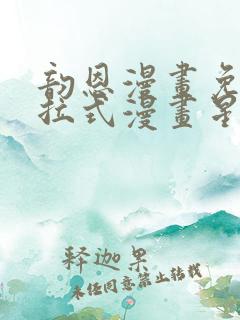 韵恩漫畫免
拉式漫畫星
释迦果
未经同意禁止转载